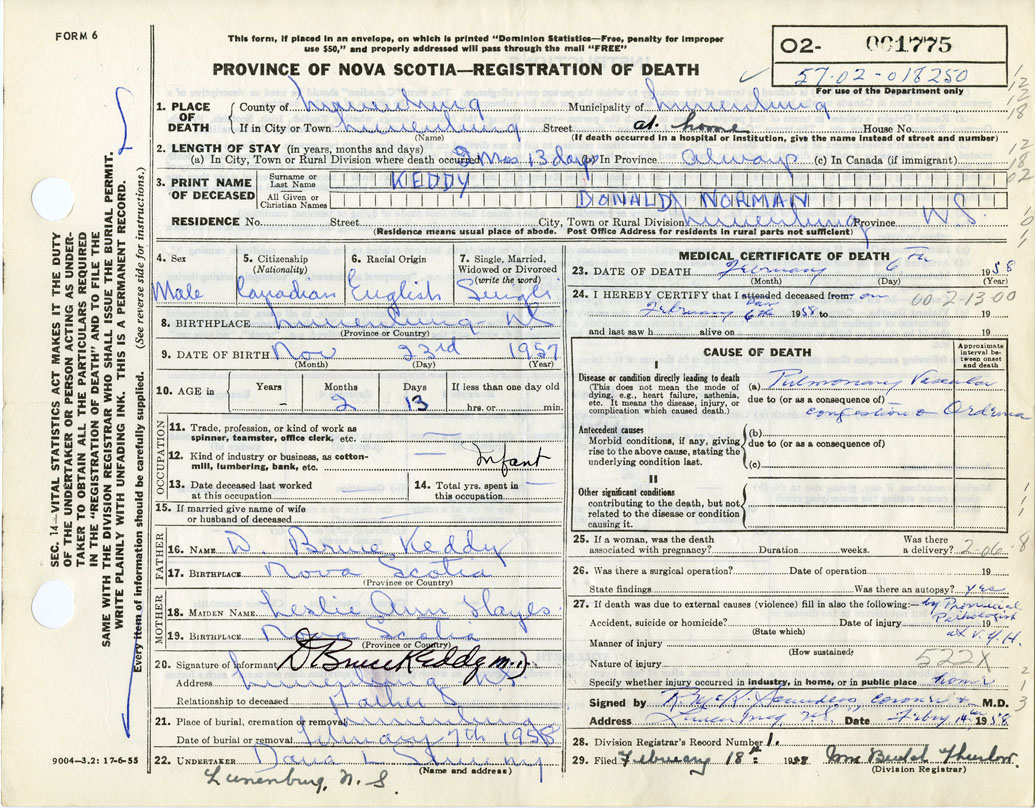 FORM 6
This form, if placed in an envelope, on which is printed "Dominion Statistics—Free, penalty for improper
use $50," and properly addressed will pass through the mail "FREE"
PROVINCE OF NOVA SCOTIA—REGISTRATION OF DEATH
02- 001775
57-02-018250
For use of the Department only
1. PLACE OF DEATH { County of Lunenburg Municipality of Lunenburg
If in City or Town Lunenburg Street at home House No.
(Name) (If death occurred in a hospital or institution, give the name instead of street and number)
2. LENGTH OF STAY (in years, months and days)
(a) In City, Town or Rural Division where death occurred 2 Mos 13 days (b) In Province always (c) In Canada (if immigrant)
3. PRINT NAME OF DECEASED { Surname or Last Name KEDDY
All Given or Christian Names DONALD NORMAN
RESIDENCE No. Street City, Town or Rural Division Lunenburg Province N.S.
(Residence means usual place of abode. Post Office Address for residents in rural parts not sufficient)
4. Sex Male
5. Citizenship (Nationality) Canadian
6. Racial Origin English
7. Single, Married, Widowed or Divorced (write the word) Single
8. BIRTHPLACE Lunenburg NS
(Province or Country)
9. DATE OF BIRTH Nov 23rd 1957
(Month) (Day) (Year)
10. AGE in Years - Months 2 Days 13 If less than one day old hrs. or min.
OCCUPATION
11. Trade, profession, or kind of work as
spinner, teamster, office clerk, etc.
12. Kind of industry or business, as cotton-
mill, lumbering, bank, etc. Infant
13. Date deceased last worked
at this occupation
14. Total yrs. spent in
this occupation
15. If married give name of wife
or husband of deceased
FATHER
16. NAME D. Bruce Keddy
17. BIRTHPLACE Nova Scotia
(Province or Country)
MOTHER
18. MAIDEN NAME Leslie Ann Hayes
19. BIRTHPLACE Nova Scotia
(Province or Country)
20. Signature of informant D. Bruce Keddy
Address Lunenburg NS
Relationship to deceased Father
21. Place of burial, cremation or removal Lunenburg
Date of burial or removal February 7th 1958
22. UNDERTAKER Dana L
(Name and address)
9004—3.2: 17-6-55
Lunenburg, N.S.
MEDICAL CERTIFICATE OF DEATH
23. DATE OF DEATH February 6th 1958
(Month) (Day) (Year)
24. I HEREBY CERTIFY that I attended deceased from: on
00-2-13.00
February 6th 1958 to 19
and last saw h alive on 19
CAUSE OF DEATH
Approximate interval between onset and death
I
Disease or condition directly leading to death
(This does not mean the mode of
dying, e.g., heart failure, asthenia,
etc. It means the disease, injury, or
complication which caused death.)
(a) Pulmonary Vascular
due to (or as a consequence of)
congestion & Oedema
Antecedent causes
Morbid conditions, if any, giving
rise to the above cause, stating the
underlying condition last.
(b)
due to (or as a consequence of)
(c)
II
Other significant conditions
contributing to the death, but not
related to the disease or condition
causing it.
25. If a woman, was the death Was there
associated with pregnancy? Duration weeks. a delivery? 2-06
26. Was there a surgical operation? Date of operation 19
State findings Was there an autopsy? yes
27. If death was due to external causes (violence) fill in also the following:— by Provincial
Accident, suicide or homicide? Date of injury 19 Pathologist
(State which) at V.G.H.
Manner of injury
(How sustained)
Nature of injury 522X
Specify whether injury occurred in industry, in home, or in public place home
Signed by Saunders coroner M.D.
Address Lunenburg NS. Date Feby 14 1958
28. Division Registrar's Record Number 1.
29. Filed February 18th 1958
(Division Registrar)
SEC. 14—VITAL STATISTICS ACT MAKES IT THE DUTY
OF THE UNDERTAKER OR PERSON ACTING AS UNDER-
TAKER TO OBTAIN ALL THE PARTICULARS REQUIRED
IN THE "REGISTRATION OF DEATH" AND TO FILE THE
SAME WITH THE DIVISION REGISTRAR WHO SHALL ISSUE THE BURIAL PERMIT.
WRITE PLAINLY WITH UNFADING INK. THIS IS A PERMANENT RECORD.
Every item of information should be carefully supplied. (See reverse side for instructions.)